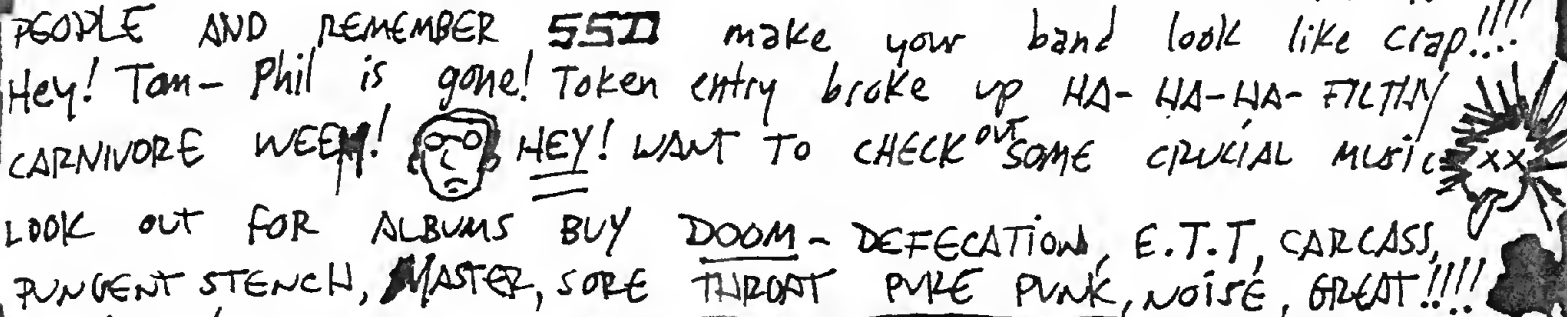 PEOPLE AND REMEMBER SSD make your band look like crap!!!!
Hey! Tom- Phil is gone! Token entry broke up HA-HA-HA- FILTHY
CARNIVORE WEEK! HEY! WANT TO CHECK OUT SOME CRUCIAL MUSIC
LOOK OUT FOR ALBUMS BUY DOOM - DEFECATION, E.T.T, CARCASS,
PUNGENT STENCH, MASTER, SORE THROAT PURE PUNK, NOISE, GREAT!!!!